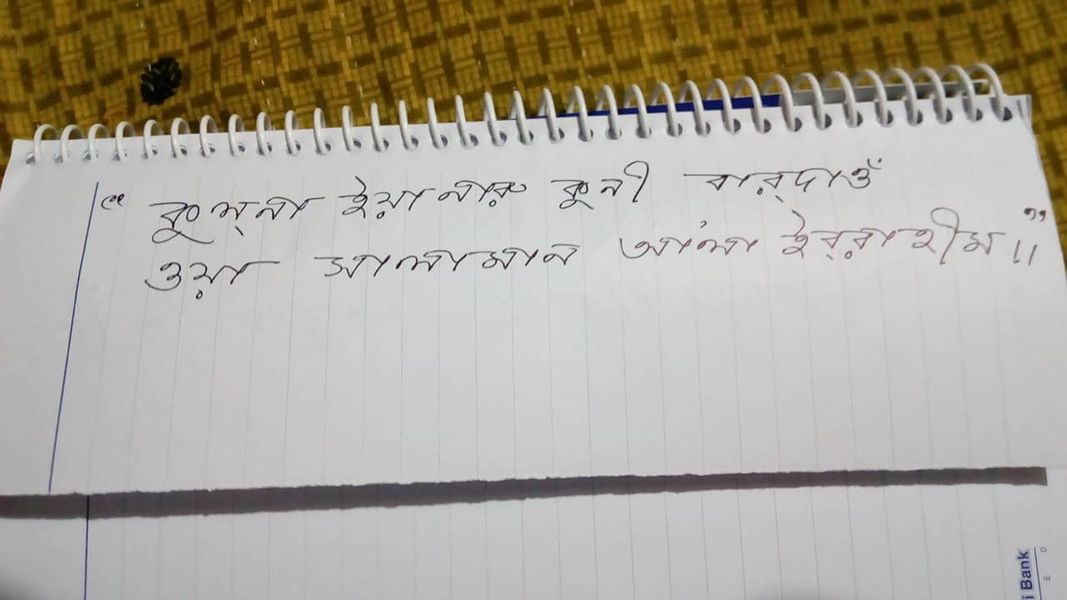 “কুল্‌না ইয়া নারু কুনী বারদাওঁ
ওয়া সালামান আ'লা ইব্‌রাহীম॥”
i Bank